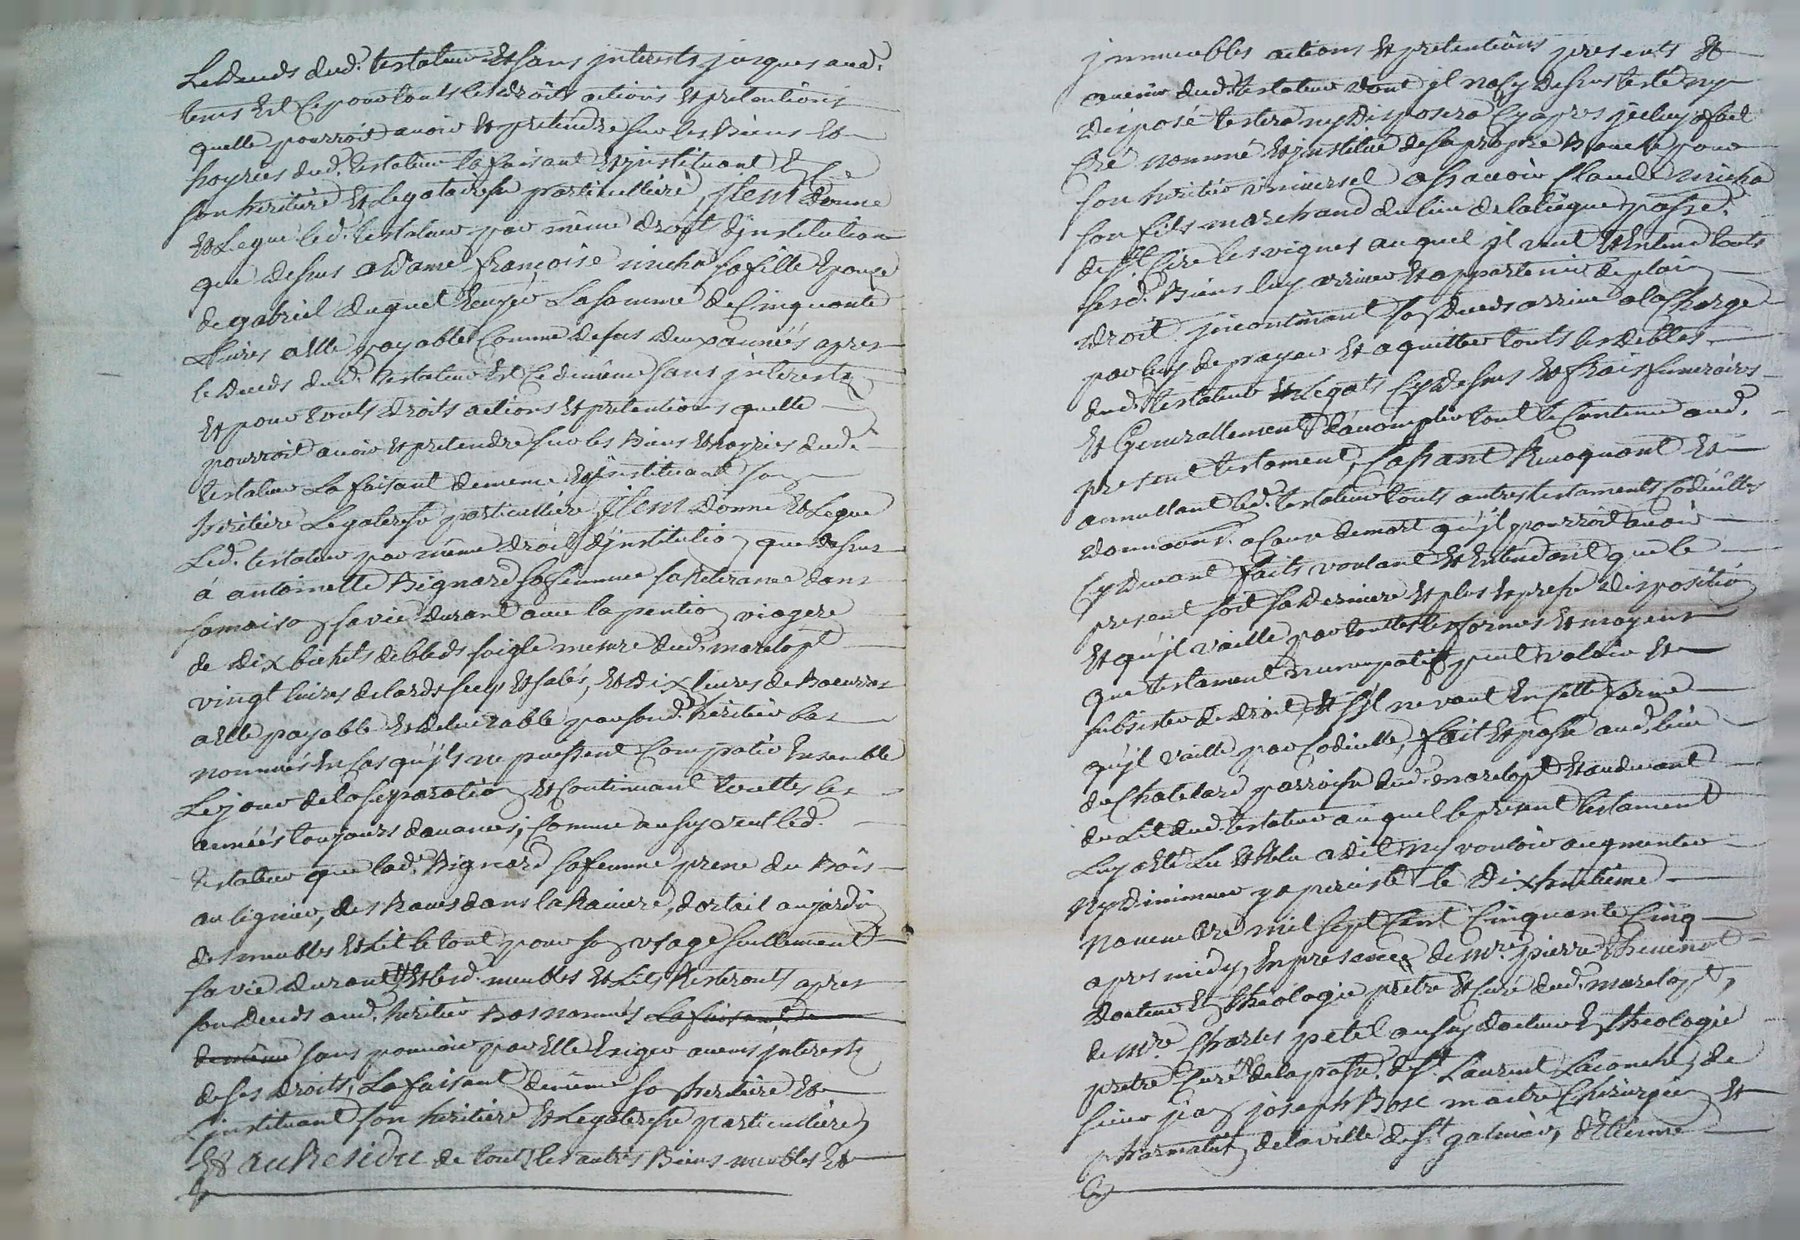 Le deceds dud. testateur et sans interests jusques aud.
tems et ce pour touts les droits actions et pretentions
quelle pourroit avoir et pretendre sur les Biens et
hoyries dud. testateur la faisant et instituant
son heritiere et legataresse particulliere, Item Donne
et Legue led. testateur par même droit d'jnstitution
que dessus a dame françoise micha sa fille Epouze
de gabriel duguet La somme de Cinquante
Livres a Elle payable Comme dessus deux années apres
le deceds dud. testateur et ce de même sans jnterests
Et pour touts droits actions et pretentions quelle
pourroit avoir et pretendre sur les Biens et hoyries dud.
testateur La faisant de meme et jnstituant son
heritiere Legateresse particulliere, Item Donne et Legue
Led. testateur par même droit d'jnstitution que dessus
à antoinette Bignard sa femme sa retirance dans
sa maison sa vie durant avec la pention viagere
de Dix bichets de bleds seigle mesure dud. marclopt
vingt livres de lards secq et salés, et Dix livres de Boeurre
a Elle payable et delivrable par sond. heritier bas
nommé En Cas qu'jls ne pussent Compatir Ensemble
Le jour de la separation et Continuant touttes les
années toujours d'avance; Comme aussy veut led.
testateur que lad. Bignard sa femme prene du Bois
au lignier, des Raves dans la Raviere, d'ortail au jardin
des meubles et Lit le tout pour son usage seullement
sa vie durant et lesd. meubles et Lits Rentronts apres
son deceds aud. heritier Bas nommés La faisant de
de même sans pouvoir par Elle Exiger aucuns jnterests
de ses droits, La faisant de même son heritiere et
jnstituant son heritiere et Legateresse particulliere,
Et au Residu de touts les autres Biens meubles et
jmmeubles actions et pretentions presents et
avenir dud. testateur dont jl n'a cy dessus testé ny
disposé testera ny disposera Cy apres jceluy a fait
Créé nommé et jnstitué de sa propre Bouche pour
son heritier universel a sçavoir Claude micha
son fils marchand du lieu de la liegue passe.
de St Cire les vignes auquel jl veut et Entend touts
sesd. Biens luy arriver et appartenir de plain
droit jncontinant son deceds arrivé a la Charge
par luy de payer et aquitter touts les debtes
dud. testateur et Legats Cy dessus et frais funeraires
Et Generallement d'acomplir tout le Contenu aud.
present testament, Cassant Revoquant et
annullant led. testateur touts autres testaments Codicilles
donnaons. a Cause de mort qu'jl pourroit avoir
Cy devant faits voulant et Entendant que le
present soit sa derniere et plus Expresse disposition
et qu'jl vaille par touttes les formes et moyens
que testament nuncupatif peut valoir et
subsister de droit, et s'jl ne vaut En cette forme
qu'jl vaille par Codicille, fait et passé aud. lieu
du Chatelard parroisse dud. marclopt et audevant
du Lit dud. testateur auquel le present testament
Luy a Eté Lu et Relu a dit n'y vouloir augmenter
ny diminuer y a persisté le Dixhuitième
novembre mil sept Cent Cinquante Cinq
apres midy, En presence de Mre. pierre thevenot
Docteur En theologie prêtre et Curé dud. marclopt,
de Mre. Charles petel aussy docteur En theologie
prêtre Curé de la passe. de St Laurent Laconche, de
sieur jean joseph Bosc maitre Chirurgien et
pharmatien de la ville de St galmier, d'Etienne